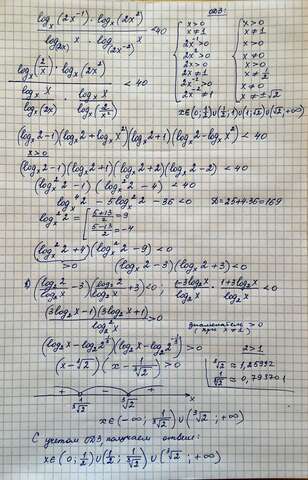 log_x(2x⁻¹)·log_x(2x²) / log_{2x} x · log_{(2x⁻²)} x < 40
ОДЗ:
{ x>0
x≠1
2x⁻¹>0
2x²>0
2x>0
2x≠1
2x⁻²>0
2x⁻²≠1
{ x>0
x≠1
x>0
x≠0
x>0
x≠1/2
x≠0
x≠±√2
x∈(0;1/2)∪(1/2;1)∪(1;√2)∪(√2;+∞)
log_x(2/x)·log_x(2x²) / (log_x x / log_x(2x) · log_x x / log_x(2/x²)) < 40
(log_x 2-1)(log_x 2+log_x x²)(log_x 2+1)(log_x 2-log_x x²) < 40
x>0
(log_x 2-1)(log_x 2+1)(log_x 2+2)(log_x 2-2) < 40
(log_x² 2-1)(log_x² 2-4) < 40
log_x⁴ 2-5log_x² 2-36<0
D=25+4·36=169
log_x² 2=[ (5+13)/2=9
(5-13)/2=-4
(log_x² 2+4)(log_x² 2-9)<0
>0
(log_x 2-3)(log_x 2+3)<0
(log₂2/log₂x-3)(log₂2/log₂x+3)<0; (1-3log₂x)/log₂x · (1+3log₂x)/log₂x<0
(3log₂x-1)(3log₂x+1) / log₂²x >0
знаменатель>0
(при x≠1)
(log₂x-log₂2^{1/3})(log₂x-log₂2^{-1/3})>0
2>1
(x-∛2)(x-1/∛2)>0
[ ∛2≈1,25992
1/∛2≈0,793701
+ - +
1/∛2 ∛2 x
x∈(-∞;1/∛2)∪(∛2;+∞)
С учетом ОДЗ получаем ответ:
x∈(0;1/2)∪(1/2;1/∛2)∪(∛2;+∞)